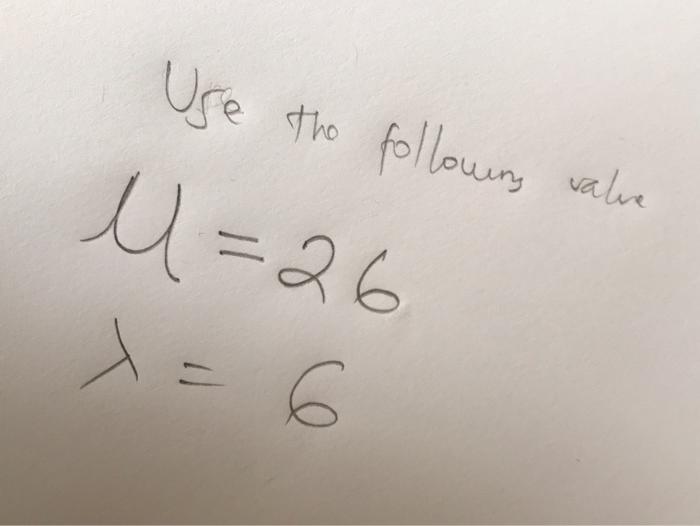 Use the following value
μ = 26
λ = 6